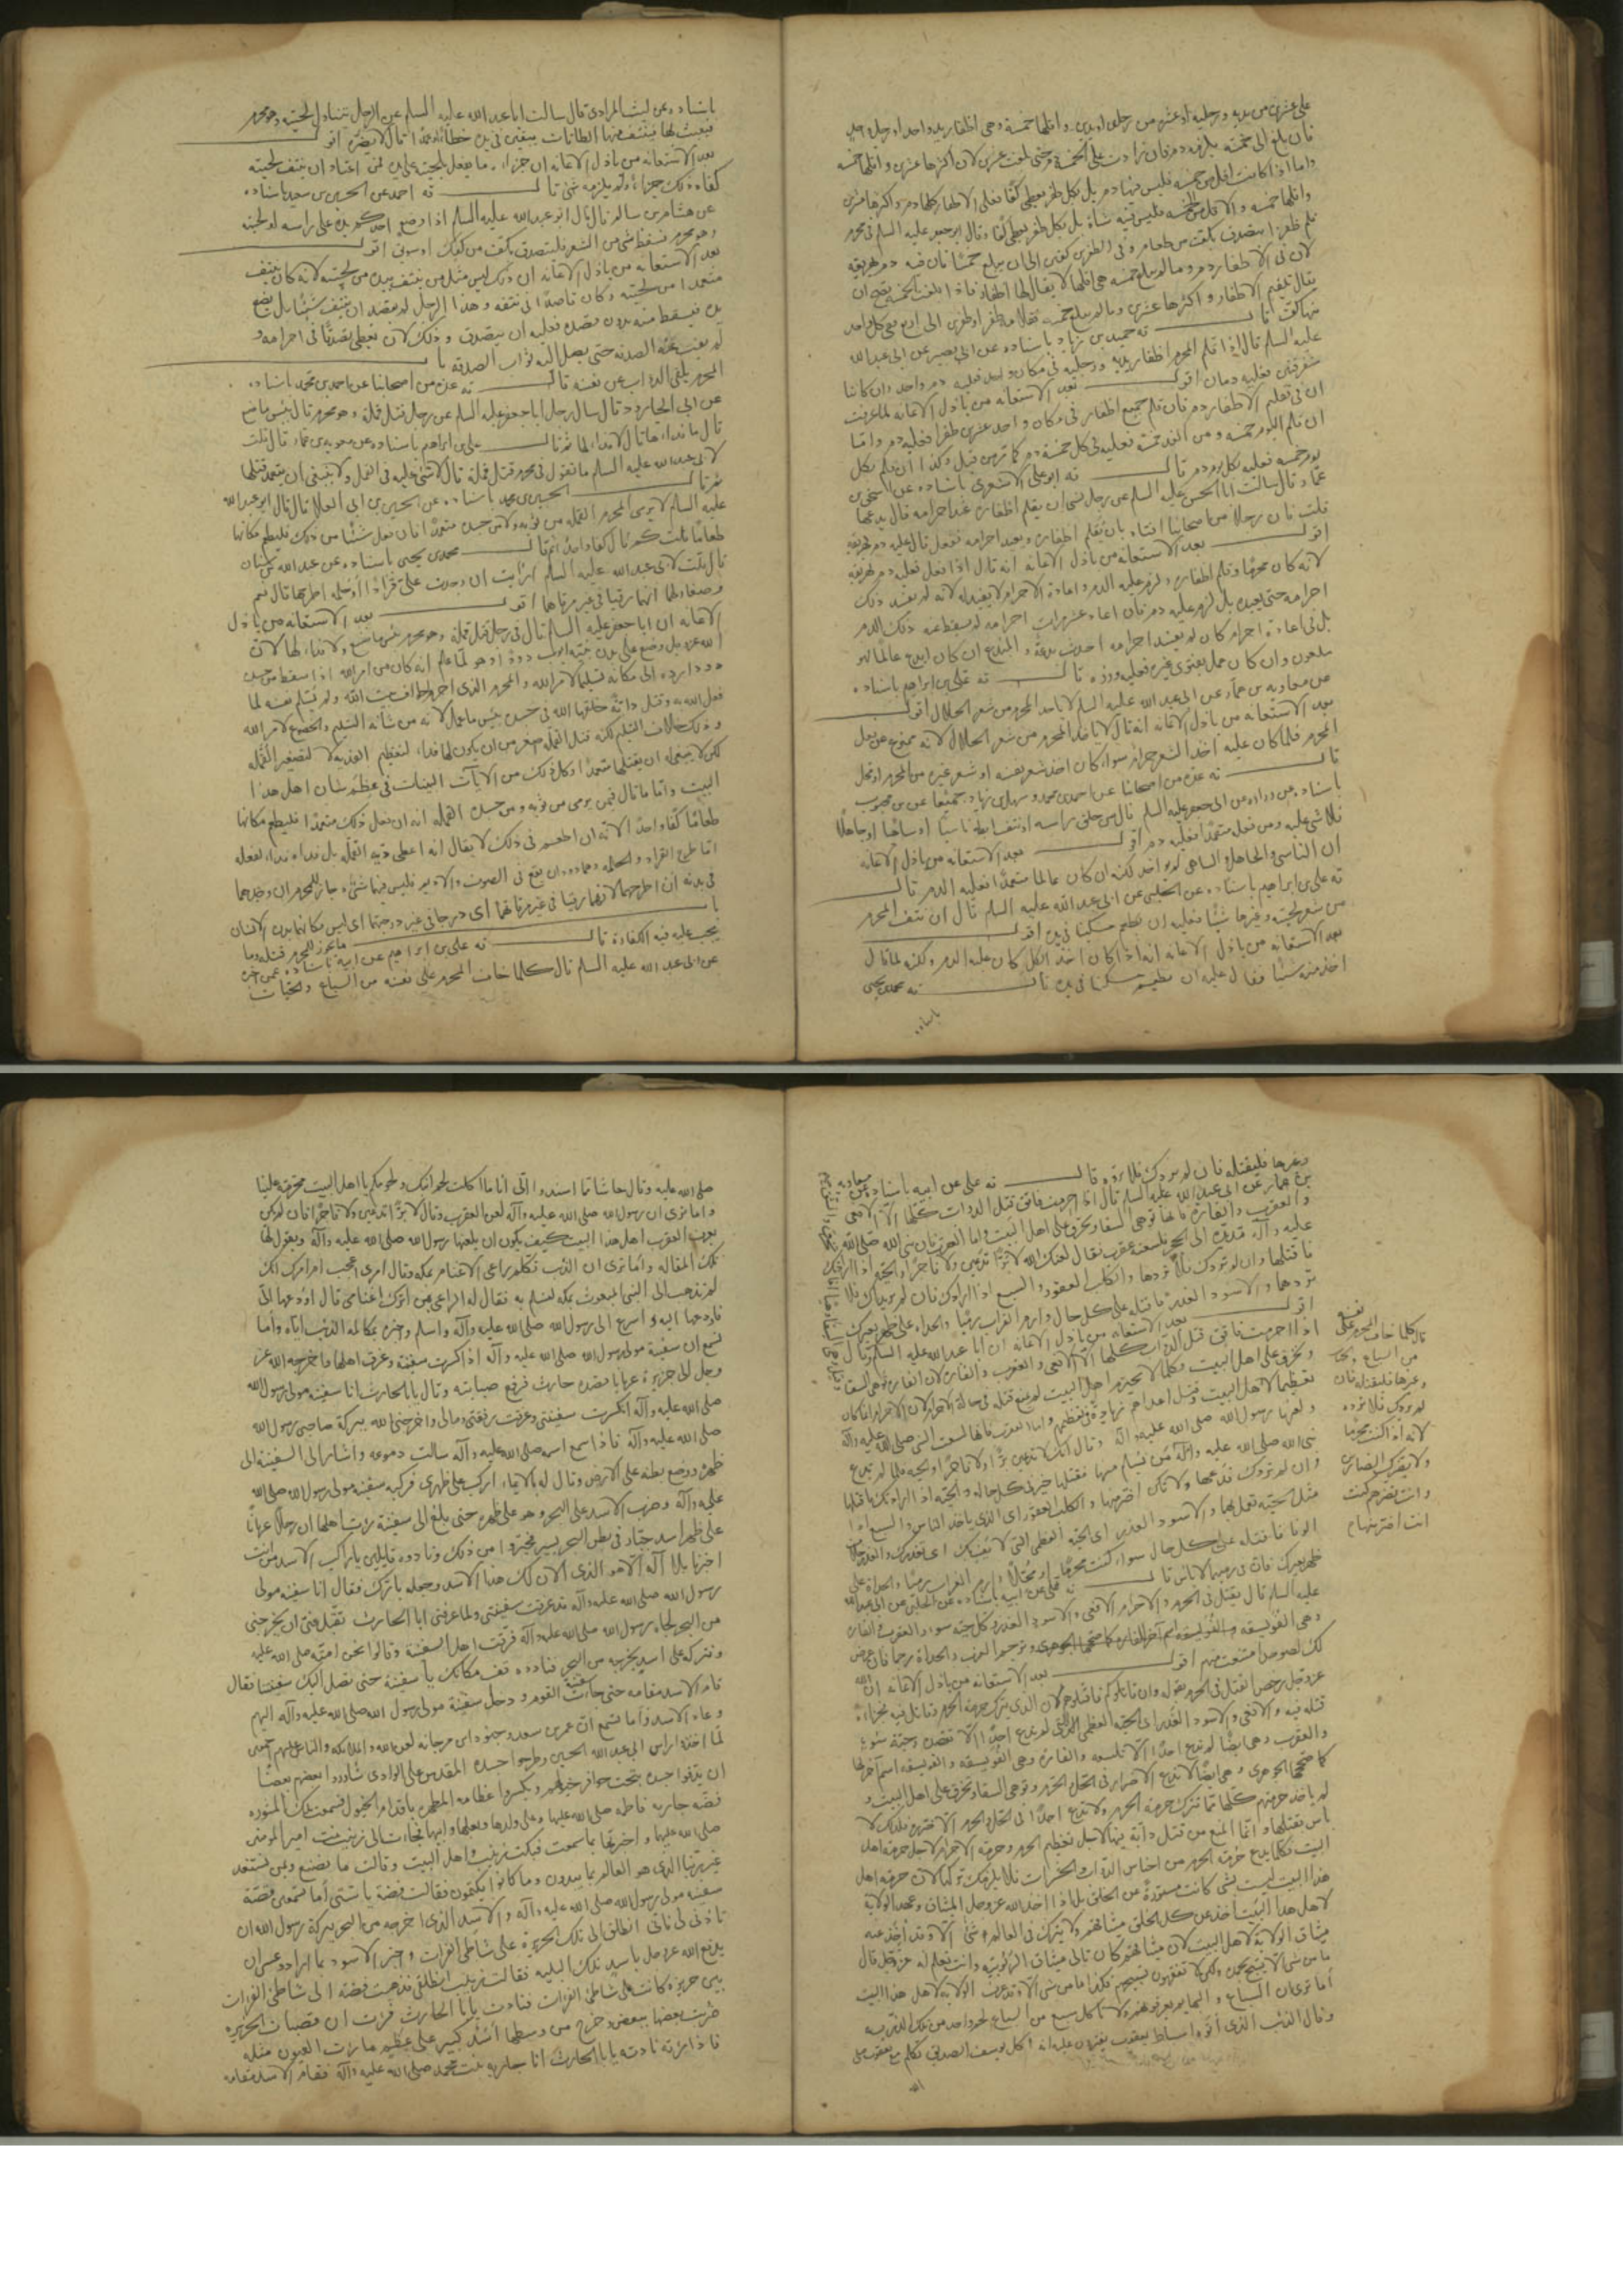 على عشرى من يديه ورجليه او عشر من رجله او يديه واقلها خمسة وهى اظفار يد واحد او رجل واحد
فان بلغ الى خمسه يلزمه دم فان زادت على الخمسة وحتى بلغت عشرى لان اكثرها عشرى واقلها خمسه
واما اذا كانت اقل من خمسه فليس فيها دم بل بكل ظفر يعطى كفا فعلى الاظفار كلها دم واكثرها عشرى
واقلها خمسه والاقل من الخمسه فليس فيه شاة بل بكل ظفر يعطى كفا وقال ابو جعفر عليه السلم فى محرم
قلم ظفرا يتصدق بكف من طعام وفى الظفرين كفين الى ان يبلغ خمسًا فان فيه دم يهريقه
لان فى الاظفار دم وما لم يبلغ خمسه هى اقلها لا يقال لها اظفار فاذا بلغت الخمسه يصح ان
يقال تقليم الاظفار واكثرها عشرى وما لم يبلغ خمسه فقلامه ظفر او ظفرين الى اربع ففى كل واحد
منها كف قال ته حميد بن زياد باسناده عن ابى بصير عن ابى عبد الله
عليه السلم قال اذا قلم المحرم اظفار يديه ورجليه فى مكان واحد فعليه دم واحد وان كانتا
متفرقتين فعليه دمان اقول بعد الاستعانه من باذل الاعانه لما عرفت
ان فى تقليم الاظفار دم فان قلم جميع اظفار فى مكان واحد عشرى ظفرا فعليه دم واما
ان قلم اليوم خمسه ومن الغد خمسة فعليه فى كل خمسة دم كما مر من قبل وكذا ان قلم بكل
يوم خمسه فعليه بكل يوم دم قال ته ابو على الاشعرى باسناده عن اسحق بن
عمار قال سالت ابا الحسن عليه السلم عن رجل نسى ان يقلم اظفاره عند احرامه قال يدعها
قلت فان رجلا من اصحابنا افتاه بان يقلم اظفاره ويعيد احرامه ففعل قال عليه دم يهريقه
اقول بعد الاستعانه من باذل الاعانه انه قال اذا فعل فعليه دم يهريقه
لانه كان محرما وقلم اظفاره ولزم عليه الدم واعادة الاحرام لا يفيد له لانه لم يفسد ذلك
احرامه حتى يعيده بل لزم عليه دم فان اعاد عشر مرات احرامه لم يسقط عنه ذلك الدم
بل فى اعادة احرام كان لم يفسد احرامه احدث بدعة والمبتدع ان كان ابدع عالما فهو
ملعون وان كان عمل بفتوى غيره فعليه وزره قال ته على بن ابراهيم باسناده
عن معاوية بن عمار عن ابى عبد الله عليه السلم لا ياخذ المحرم من شعر الحلال اقول
بعد الاستعانه من باذل الاعانه انه قال لا ياخذ المحرم من شعر الحلال لانه ممنوع من فعل
المحرم فلما كان عليه اخذ الشعر حرام سواء كان اخذ شعر نفسه او شعر غيره من المحرم او محل
قال ته عدة من اصحابنا عن احمد بن محمد وسهل بن زياد جميعا عن بن محبوب
باسناده عن زراره عن ابى جعفر عليه السلم قال من حلق راسه او نتف ابطه ناسيا او ساهيا او جاهلا
فلا شى عليه ومن فعله متعمدا فعليه دم اقول بعد الاستعانه من باذل الاعانه
ان الناسى والجاهل والساهى لم يؤاخذ لكنه ان كان عالما متعمدا فعليه الدم قال
ته على بن ابراهيم باسناده عن الحلبى عن ابى عبد الله عليه السلم قال ان نتف المحرم
من شعر لحيته وغيرها شيئا فعليه ان يطعم مسكينا فى يده اقول
بعد الاستعانه من باذل الاعانه انه اذا كان اخذ الكل كان عليه الدم ولكنه لما قال
اخذ منه شيئا فقال عليه ان يطعم مسكينا فى يده قال ته محمد بن يحيى
باسناده
باسناده عن ليث المرادى قال سالت ابا عبد الله عليه السلم عن الرجل يتناول لحيته وهو محرم
فيعبث بها فينتف منها الطاقات يبقين فى يده خطأ او عمدا قال لا يضره اقول
بعد الاستعانه من باذل الاعانه ان جزاء ما يفعل بلحيته على يده لمن اعتاد ان ينتف لحيته
كفاه ذلك جزاء ولم يلزمه شى قال ته احمد عن الحسين بن سعيد باسناده
عن هشام بن سالم قال قال ابو عبد الله عليه السلم اذا وضع احدكم يده على راسه او لحيته
وهو محرم فسقط شى من الشعر فليتصدق بكف من كعك او سويق اقول
بعد الاستعانه من باذل الاعانه ان ذلك ليس مثل من ينتف بيده من لحيته لانه كان ينتف
متعمدا من لحيته وكان قاصدا فى نتفه وهذا الرجل لم يقصد ان ينتف شيئا بل يضع
يده فيسقط منه بدون مقصده فعليه ان يتصدق وذلك لان يعطى تصدقا فى احرامه و
لم يفت عنه الصدقه حتى يصل اليه ثواب الصدقه باب
المحرم يلقى الدواب عن نفسه قال ته عدة من اصحابنا عن احمد بن محمد باسناده
عن ابى الجارود قال سال رجل ابا جعفر عليه السلم عن رجل قتل قملة وهو محرم قال بئس ما صنع
قال ما فداءها قال لا فداء لها ثم قال على بن ابراهيم باسناده عن معوية بن عمار قال قلت
لابى عبد الله عليه السلم ما تقول فى محرم قتل قملة قال لا شى عليه فى القمل ولا ينبغى ان يتعمد قتلها
ثم قال الحسين بن محمد باسناده عن الحسين بن ابى العلا قال قال ابو عبد الله
عليه السلم لا يرمى المحرم القمله من ثوبه ولا من جسده متعمدا فان فعل شيئا من ذلك فليطعم مكانها
طعاما قلت كم قال كفا واحدا ثم قال محمد بن يحيى باسناده عن عبد الله بن سنان
قال قلت لابى عبد الله عليه السلم ارايت ان وجدت على قرادا او حلمه اطرحهما قال نعم
وصغار لهما انهما رقيا فى غير مرقاهما اقول بعد الاستعانه من باذل
الاعانه ان ابا جعفر عليه السلم قال فى رجل قتل قملة وهو محرم بئس ما صنع ولا فداء لها لان
الله عز وجل وضع على بدن نبيه ايوب دودا وهو لما علم انه كان من امر الله اذا سقط من جسده
دود ارده الى مكانه تسليما لامر الله والمحرم الذى احرم لطواف بيت الله ولم يسلم نفسه لما
فعل الله به وقتل دابة خلقها الله فى جسده بئس ما عمل لانه من شأنه التسليم والخضوع لامر الله
وذلك خلاف التسليم لكنه قتل القمله صغر من ان يكون لها فداء لتعظيم الفديه لا لتصغير القمله
لكن لا ينبغى له ان يقتلها متعمدا وكل ذلك من الايات البينات فى عظم شان اهل هذا
البيت واما ما قال فيمن يرمى من ثوبه ومن جسده القمله انه ان فعل ذلك متعمدا فليطعم مكانها
طعاما كفا واحدا لانه ان اطعم فى ذلك لا يقال انه اعطى دية القمله بل فداه فداء لفعله
اما طرح القراد والحلمه وهما دودان يقع فى الصوف والاوبر فليس فيهما شى جاز للمحرم ان وجدهما
فى بدنه ان اطرحهما لانهما رقيا فى غير مرقاهما اى درجا فى غير درجتهما اى ليس مكانهما بدن الانسان
باب ما يجوز للمحرم قتله وما
يجب عليه فيه الكفارة قال ته على بن ابراهيم عن ابيه باسناده عمن اخبره
عن ابى عبد الله عليه السلم قال كلما خاف المحرم على نفسه من السباع والحيات
وغيرها فليقتله فان لم يردك فلا ترده قال ته على عن ابيه باسناده عن معاوية
بن عمار عن ابى عبد الله عليه السلم قال اذا احرمت فاتق قتل الدواب كلها الا الافعى
والعقرب والفارة فانها توهى السقاء وتحرق على اهل البيت واما العقرب فان نبى الله صلى الله
عليه وآله مد يده الى الحجر فلسعته عقرب فقال لعنك الله لا برا تدعين ولا فاجرا والحيه اذا ارادتك
فاقتلها وان لم تردك فلا تردها والكلب العقور والسبع اذا ارادوك فان لم يريداك فلا
تردهما والاسود الغدر فاقتله على كل حال وارم الغراب رميا والحداة على ظهر بعيرك
اقول بعد الاستعانه من باذل الاعانه ان ابا عبد الله عليه السلم قال
اذا احرمت فاتق قتل الدواب كلها الا الافعى والعقرب والفارة لان الفارة توهى السقاء
وتحرق على اهل البيت وكلما لا يحترم اهل البيت لم يمنع قتله فى حالة الاحرام لان الاحرام انما كان
تعظيما لاهل البيت وقتل اعداهم زيادة فى تعظيمهم واما العقرب فانها لسعت النبى صلى الله عليه وآله
ولعنها رسول الله صلى الله عليه وآله وقال انك لا تدعين برا ولا فاجرا والحيه فلما لم تدع
نبى الله صلى الله عليه وآله من يسلم منها فقتلها خير فى كل حاله والحيه اذا ارادتك فاقتلها
وان لم تردك فدعها ولا تكن اضر منها والكلب العقور اى الذى ياخذ الناس والسبع اذا
مثل الحية تعمل بها والاسود الغدر اى الحيه العظمى التى لا تفيدك اى تغدرك والغدر حالا
الوفا فاقتله على كل حال سواء كنت محرما او محلا وارم الغراب رميا والحداة على
ظهر بعيرك فان فى رميهما لا باس قال ته على عن ابيه باسناده عن الحلبى عن ابى عبد الله
عليه السلم قال يقتل فى الحرم والاحرام الافعى والاسود الغدر وكل حية سوء والعقرب والفارة
وهى الفويسقه ويرجم الغراب والحداة رجما فان عرض
لك لصوص امتنعت منهم اقول بعد الاستعانه من باذل الاعانه ان الله
عز وجل رخص القتل فى الحرم بقوله وان قاتلوكم فاقتلوهم لان الذى يترك حرمة الحرم وقاتل فيه فجزاءه
قتله فيه والافعى والاسود الغدر اى الحية العظمى التى لم تدع احدا الا تقصده وحية سوء
والعقرب وهى ايضا لم تدع احدا الا تلسعه والفارة وهى الفويسقه والفويسقه اسم آخر لها
كما صححها الجوهرى وهى ايضا لا تدع الاضرار فى الحل والحرم وتوهى السقاء وتحرق على اهل البيت و
لم ياخذ حرمتهم كلها مما تترك حرمة الحرم ولا تدع احدا فى الحل والحرم الا تضره فلذلك لا
باس بقتلها وانما المنع من قتل دابة فيها لاجل تعظيم الحرم وحرمة الاحرام لاجل حرمة اهل
البيت فكلما يدع حرمة الحرم من اجناس الدواب والحشرات فلا يلزمك تركها لان حرمة اهل
هذا البيت ليست بشى كانت مستورة عن الخلق بل اذا اخذ الله عز وجل الميثاق وعهد الولاية
لاهل هذا البيت اخذ عن كل الخلق ميثاقهم ولا يترك فى العالم شى الا وقد اخذ عنه
ميثاق الولاية لاهل البيت لان ميثاقهم كان تالى ميثاق الربوبيه وانت تعلم انه عز وجل قال
ما من شى الا يسبح بحمده ولكن لا تفقهون تسبيحهم فكذا ما من شى الا وقد عرف الولايه لاهل هذا البيت
أما ترى ان السباع والبهايم يعرفونهم ولا تاكل سبع من السباع لحم واحد من تلك الذريه
وقال الذئب الذى اتوه اسباط يعقوب يفترون عليه انه اكل يوسف الصديق تكلم مع يعقوب صلى
الله
قال كلما خاف المحرم على نفسه
من السباع والحيات
وغيرها فليقتله فان
لم يردك فلا ترده
لانه اذا كنت محرما
ولا يضرك الضائر
وانت تضرهم كنت
انت اضر منهم
صلى الله عليه وقال حاشا ثما اسندوا الى انا ما اكلت لحم ابنك ولحومكم يا اهل البيت محرمة علينا
واما ترى ان رسول الله صلى الله عليه وآله لعن العقرب وقال لا برا تدعين ولا فاجرا فان لم يكن
يعرف العقرب اهل هذا البيت كيف يكون ان يلعنها رسول الله صلى الله عليه وآله ويقول لها
تلك المقاله وأما ترى ان الذئب تكلم براعى الاغنام بمكه وقال امرى اعجب ام امرك انك
لم تذهب الى النبى المبعوث بمكه لتسلم به فقال له الراعى بمن اترك اغنامى قال اودعها الى
فاودعها اليه واسرع الى رسول الله صلى الله عليه وآله واسلم واخبره بمكالمه الذئب اياه وأما
تسمع ان سفينة مولى رسول الله صلى الله عليه وآله اذ انكسرت سفينة وغرق اهلها فاخرجه الله عز
وجل الى جزيرة عريانا بقصده حارث فرفع صبابته وقال يا ابا الحارث انا سفينه مولى رسول الله
صلى الله عليه وآله انكسرت سفينتى وغرقت رفقتى ومالى واخرجنى الله ببركة صاحبى رسول الله
صلى الله عليه وآله فاذا سمع اسمه صلى الله عليه وآله سالت دموعه واشار الى السفينة الى
ظهره ووضع بطنه على الارض وقال له بالايماء اركب على ظهرى فركبه سفينه مولى رسول الله صلى الله
عليه وآله وضرب الاسد على البحر وهو على ظهره حتى بلغ الى سفينة رأت اهلها ان رجلا عريانا
على ظهر اسد جبار فى بطن البحر يسير فتحيروا من ذلك ونادوه قايلين يا راكب الاسد من انت
اخبرنا بلا اله الا هو الذى الان لك هذا الاسد وجعله بامرك فقال انا سفينه مولى
رسول الله صلى الله عليه وآله قد غرقت سفينتى ولما عرفنى ابا الحارث تقبل منى ان يخرجنى
من البحر لجاه رسول الله صلى الله عليه وآله فرقت اهل السفينة وقالوا نحن امته صلى الله عليه
ونتركه على اسد يخرجه من البحر فنادوه قف مكانك يا سفينة حتى تصل اليك سفينتنا فقال
قام الاسد مقامه حتى جاءت سفينة القوم ودخل سفينة مولى رسول الله صلى الله عليه وآله اليهم
وعاد الاسد وأما تسمع ان عمر بن سعد وجنوده ابن مرجانه لعن الله والملائكه والناس عليهم اجمعين
لما اخذوا راس ابى عبد الله الحسين وطرحوا جسده المقدس على الوادى شاوروا بعضهم بعضا
ان يدقوا جسده بتحت حوافر خيولهم ويكسروا عظامه المطهره باقدام الخيول فسمعت تلك المشوره
فضه جارية فاطمه صلى الله عليها وعلى ولدها وبعلها وابيها فجاءت الى زينب بنت امير المومنين
صلى الله عليهما واخبرتها بما سمعت فبكت زينب واهل البيت وقالت ما نصنع وبمن نستنقذ
غير ربنا الذى هو العالم بما يبدون وما كانوا يكتمون فقالت فضة يا ستى أما تسمعى قصة
سفينه مولى رسول الله صلى الله عليه وآله والاسد الذى اخرجه من البحر ببركة رسول الله ان
تاذنى لى فانى انطلق الى تلك الجزيرة على شاطى الفرات واخبر الاسود بما ارادوا عسى ان
يدفع الله عز وجل باسد تلك البليه فقالت زينب انطلقى فذهبت فضه الى شاطئ الفرات
يبى جزيره كانت على شاطئ الفرات فنادت يا ابا الحارث فرأت ان قصبات الجزيره
ضربت بعضها ببعض وخرج من وسطها أسد كبير على عظيم ما رأت العيون مثله
فاذا رأته نادته يا ابا الحارث انا جاريه بنت محمد صلى الله عليه وآله فقام الاسد مقامه